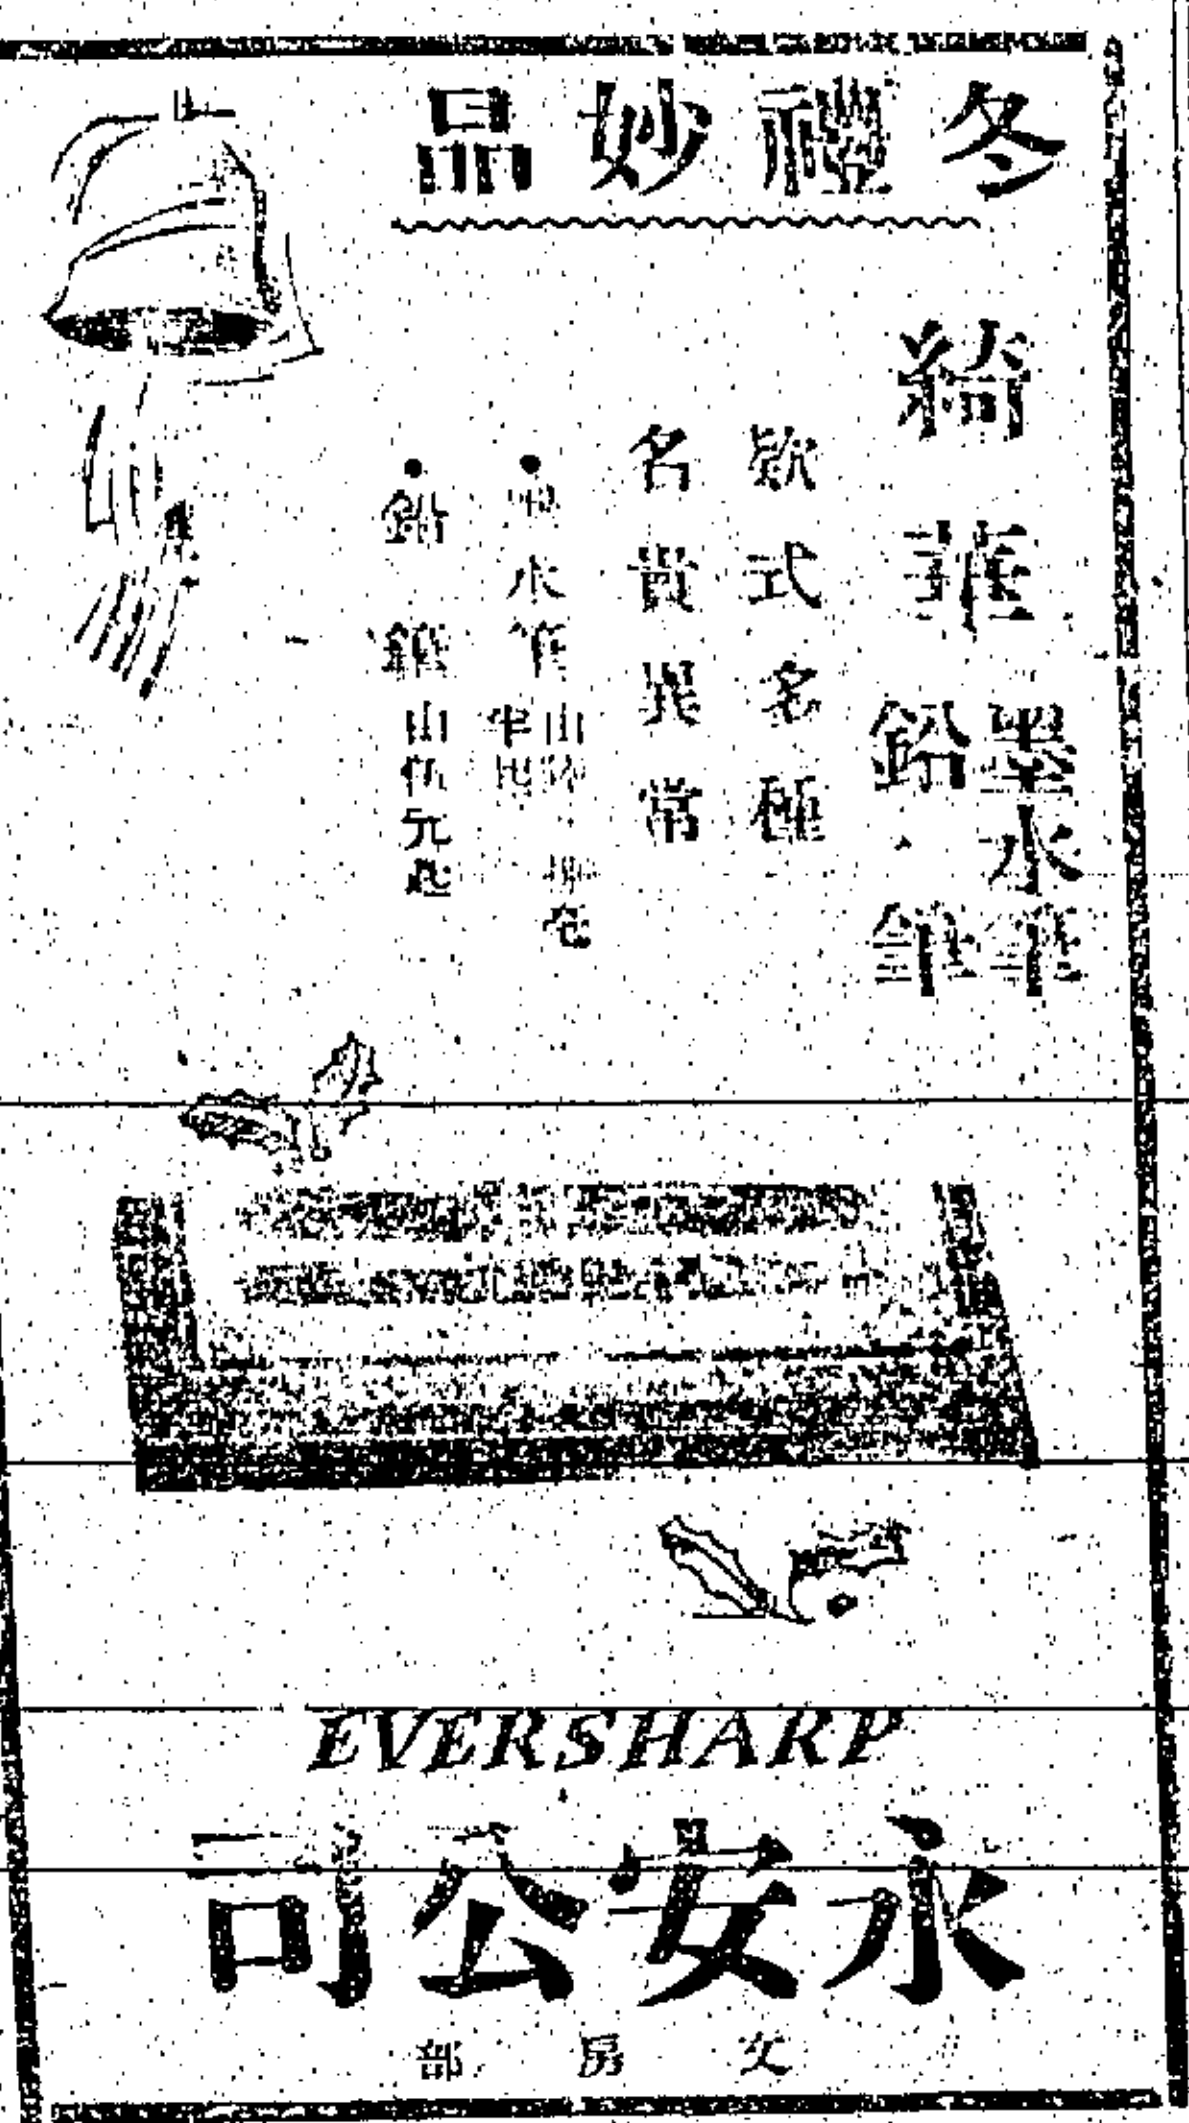 冬禮妙品
綺華墨水筆
鉛筆
款式多種
名貴異常
●墨水筆
●鉛筆由伍元起
EVERSHARP
永安公司
文房部